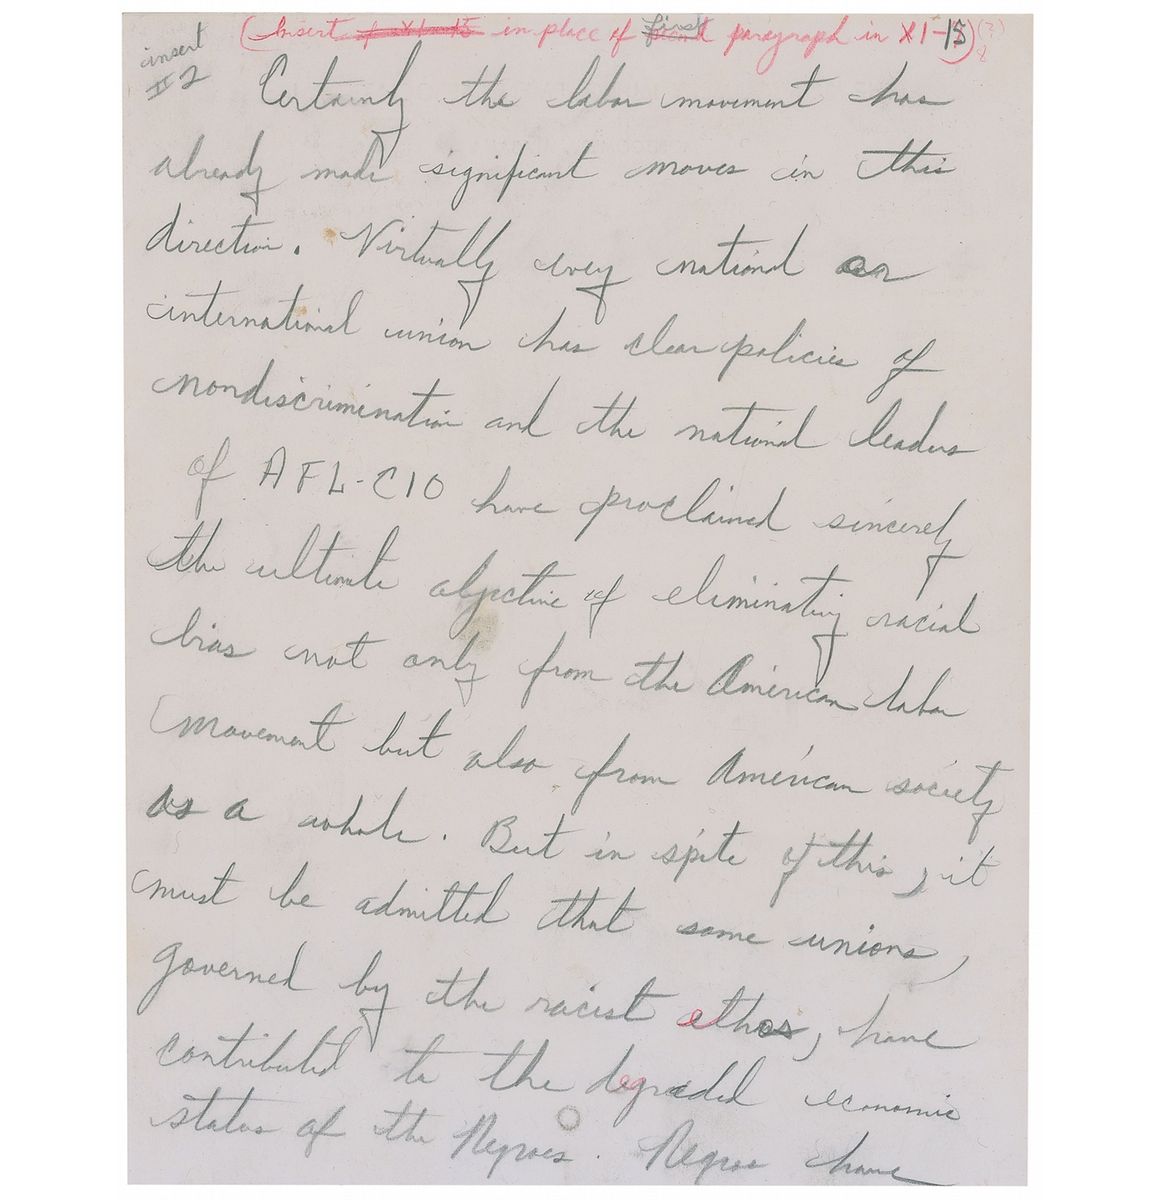 (Insert of XI-15 in place of first paragraph in XI-15) (?)
insert
II 2
Certainly the labor movement has
already made significant moves in this
direction. Virtually every national or
international union has clear policies of
nondiscrimination and the national leaders
of AFL-CIO have proclaimed sincerely
the ultimate objective of eliminating racial
bias not only from the American labor
movement but also from American society
as a whole. But in spite of this, it
must be admitted that some unions,
governed by the racist ethos, have
contributed to the degraded economic
status of the Negroes. Negroe have